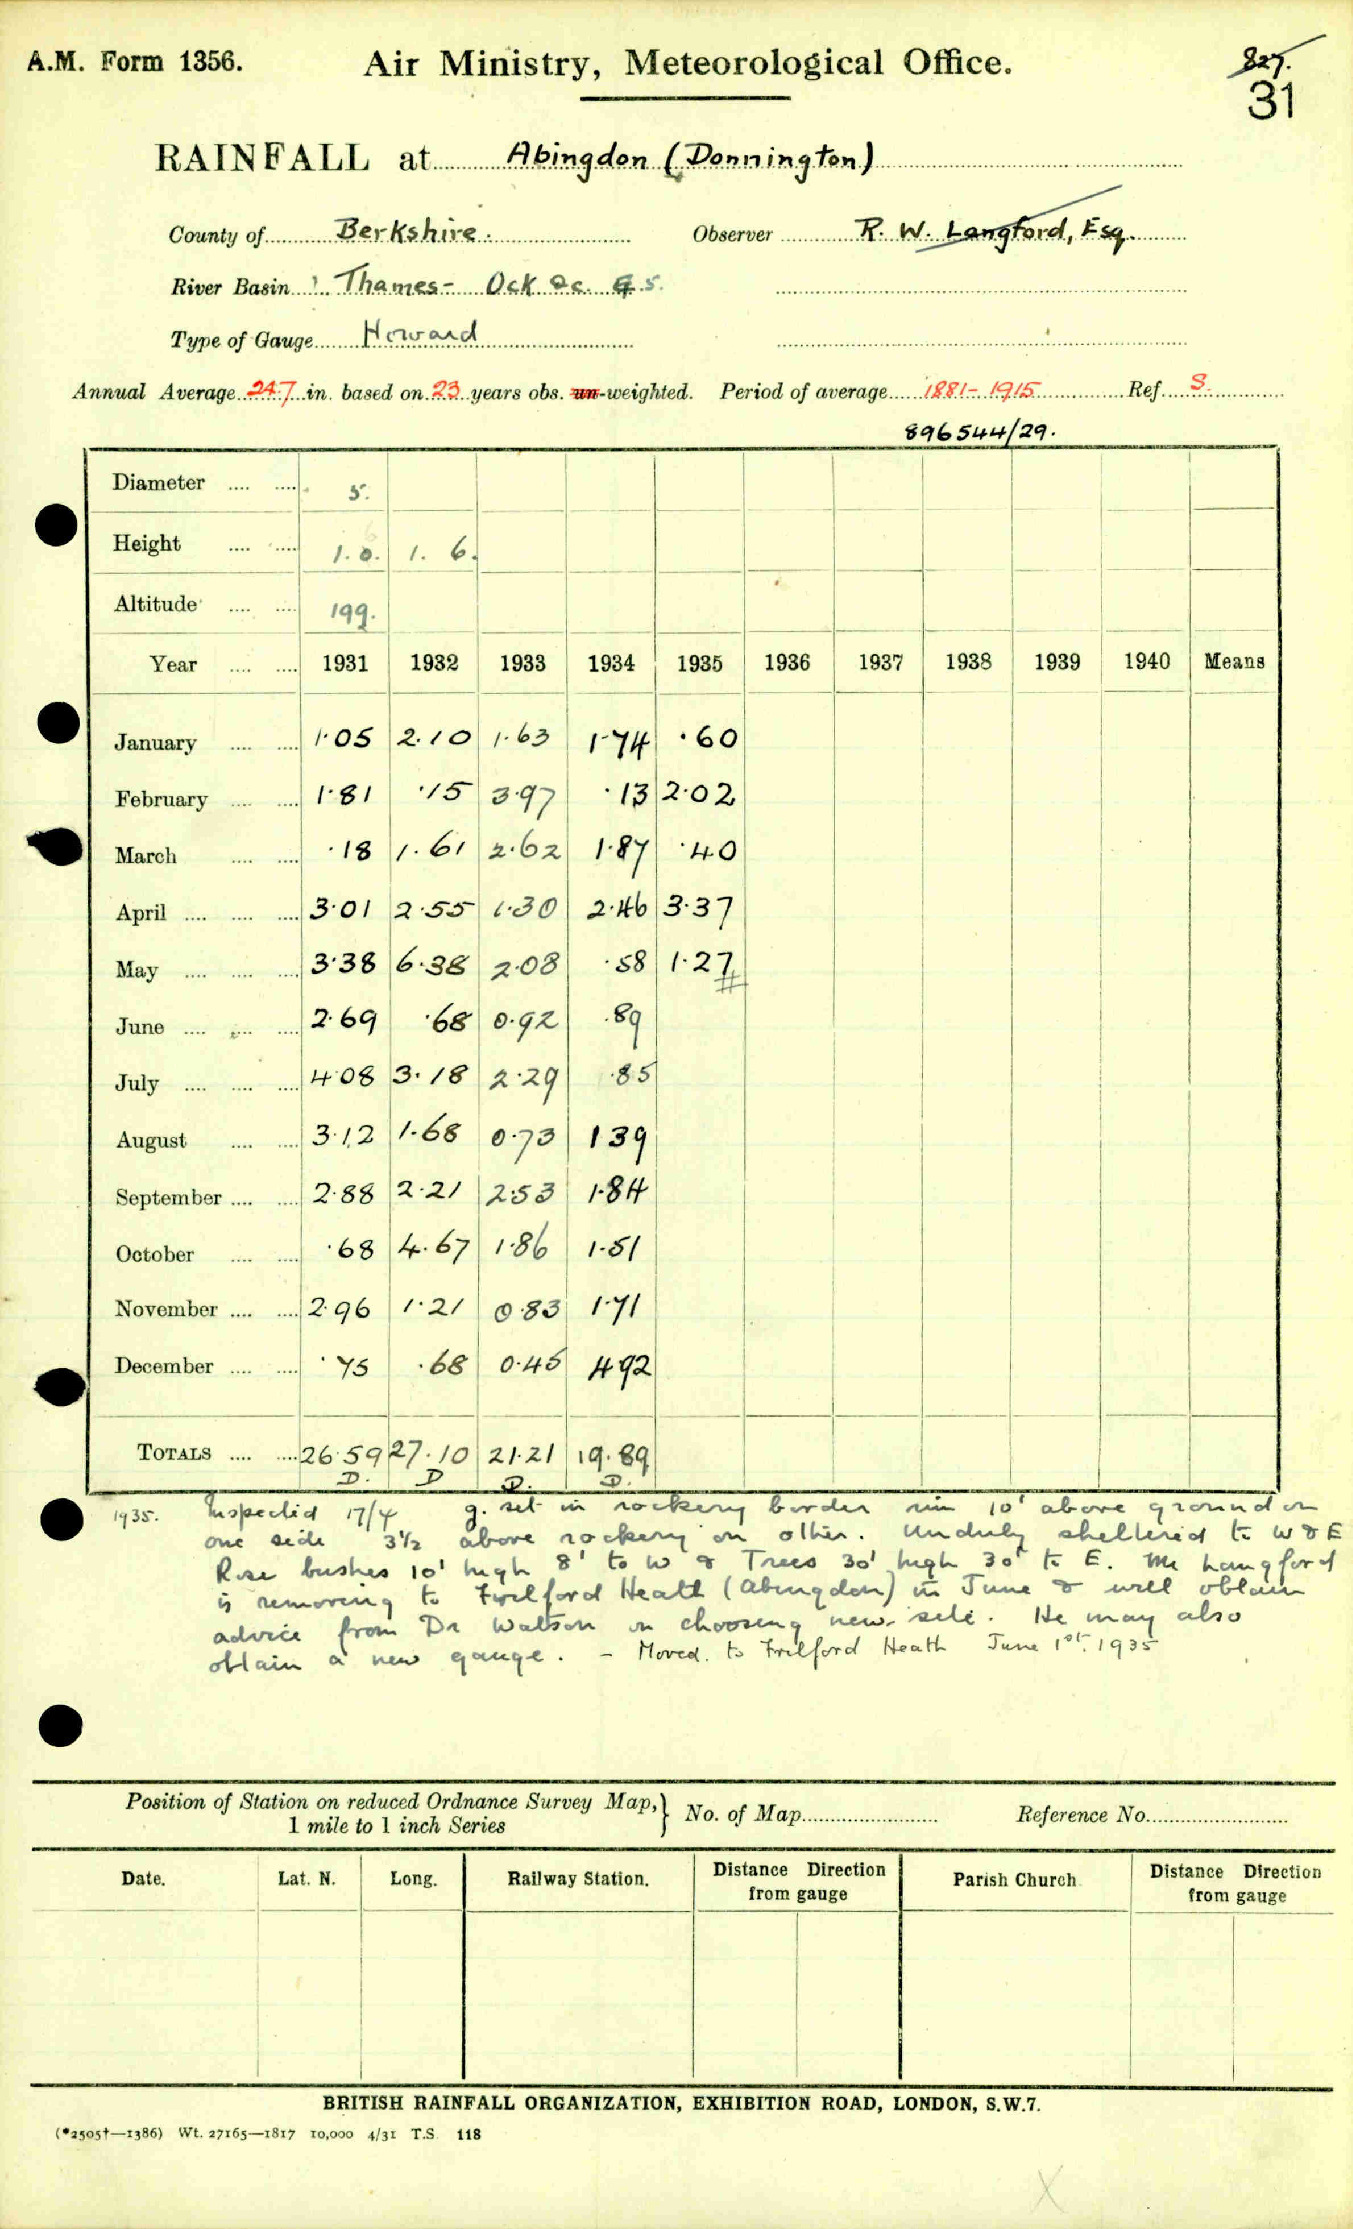 A.M. Form 1356. Air Ministry, Meteorological Office. 827.
31
RAINFALL at Abingdon (Donnington)
County of Berkshire. Observer R. W. Langford, Esq.
River Basin Thames - Ock &c. 5.
Type of Gauge Howard
Annual Average 24.7 in. based on 23 years obs. un-weighted. Period of average 1881-1915 Ref. S.
896544/29.
Diameter .... .... 5.
Height .... .... 1. 6. 1. 6.
Altitude .... .... 199.
Year .... .... 1931 1932 1933 1934 1935 1936 1937 1938 1939 1940 Means
January .... .... 1.05 2.10 1.63 1.74 .60
February .... .... 1.81 .15 3.97 .13 2.02
March .... .... .18 1.61 2.62 1.87 .40
April .... .... .... 3.01 2.55 1.30 2.46 3.37
May .... .... .... 3.38 6.38 2.08 .58 1.27
June .... .... .... 2.69 .68 0.92 .89
July .... .... .... 4.08 3.18 2.29 .85
August .... .... 3.12 1.68 0.73 1 39
September .... .... 2.88 2.21 2.53 1.84
October .... .... .68 4.67 1.86 1.51
November .... .... 2.96 1.21 0.83 1.71
December .... .... .75 .68 0.45 4.92
TOTALS .... .... 26.59 27.10 21.21 19.89
D. D D. D.
1935. Inspected 17/4 g. set in rockery border rim 10" above ground on
one side 3½ above rockery on other. Unduly sheltered to W & E
Rose bushes 10' high 8' to W & Trees 30' high 30' to E. Mr Langford
is removing to Frilford Heath (Abingdon) in June & will obtain
advice from Dr Watson on choosing new site. He may also
obtain a new gauge. - Moved to Frilford Heath June 1st. 1935
Position of Station on reduced Ordnance Survey Map, } No. of Map Reference No.
1 mile to 1 inch Series
Date. Lat. N. Long. Railway Station. Distance Direction from gauge Parish Church Distance Direction from gauge
BRITISH RAINFALL ORGANIZATION, EXHIBITION ROAD, LONDON, S.W.7.
(*2505†—1386) Wt. 27165—1817 10,000 4/31 T.S. 118